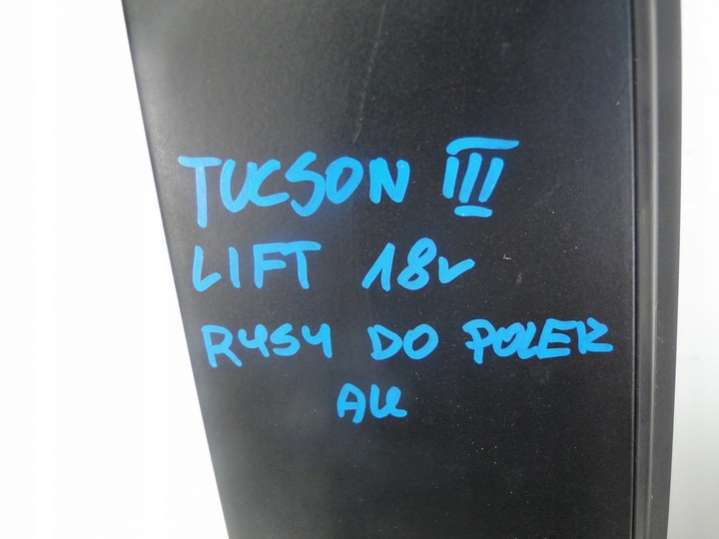 TUCSON III
LIFT 18r
RYSY DO POLER
AK